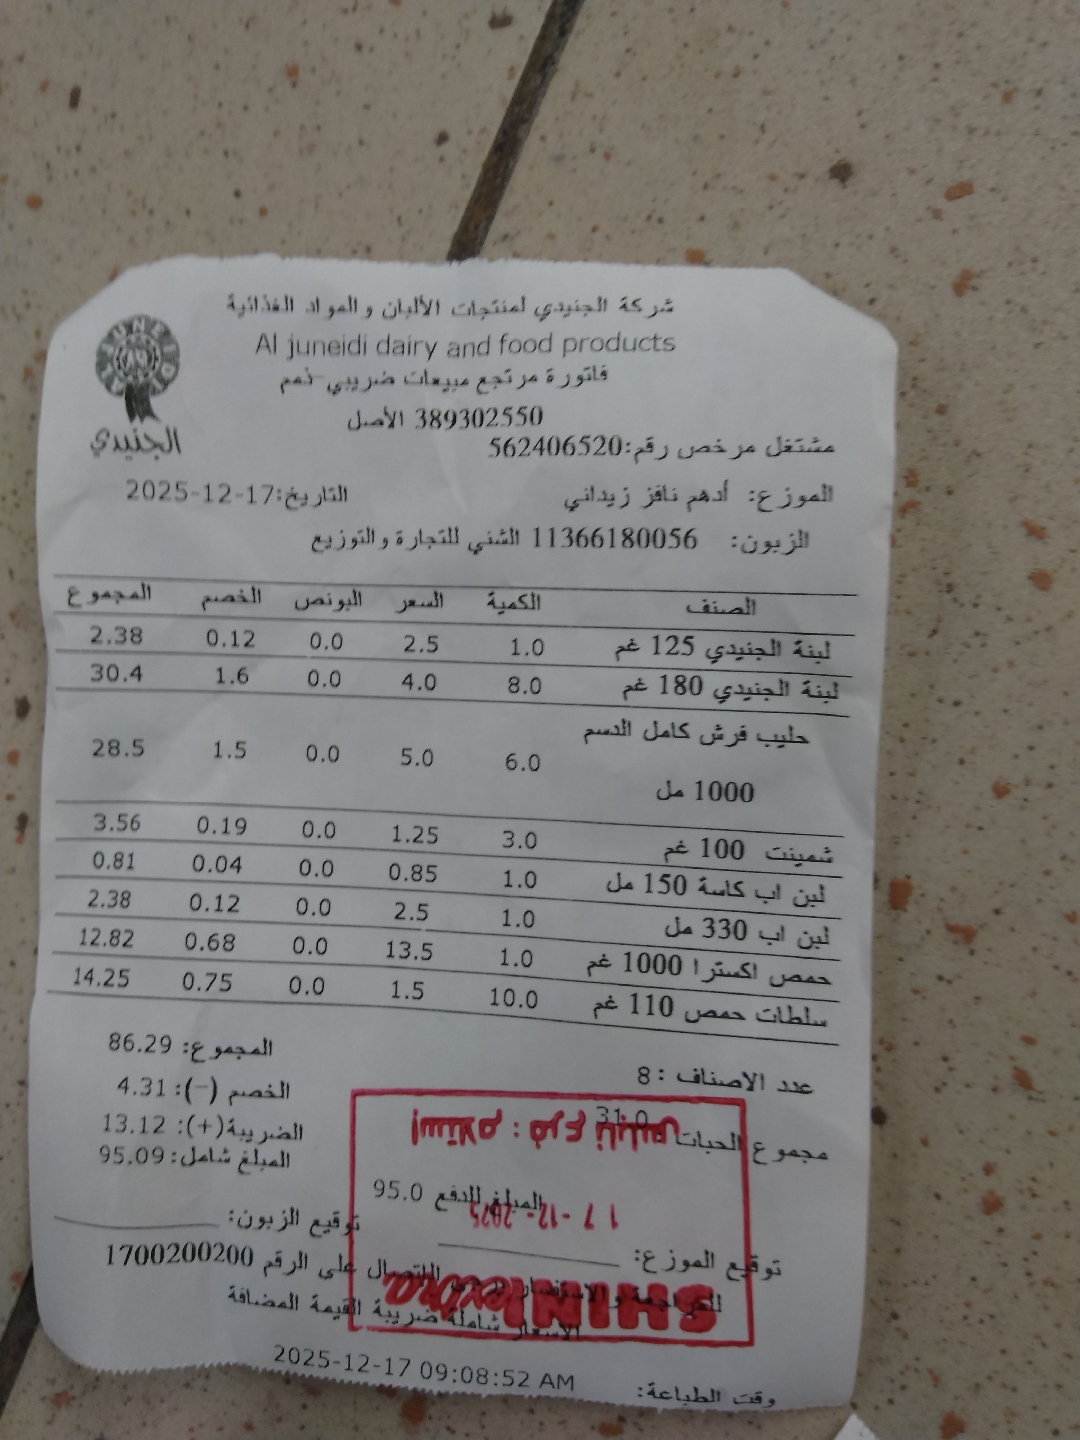 شركة الجنيدي لمنتجات الألبان والمواد الغذائية
Al juneidi dairy and food products
فاتورة مرتجع مبيعات ضريبي-ذمم
389302550 الأصل
مشتغل مرخص رقم:562406520
الجنيدي
الموزع: أدهم نافز زيداني التاريخ:2025-12-17
الزبون: 11366180056 الشني للتجارة والتوزيع
الصنف الكمية السعر البونص الخصم المجموع
لبنة الجنيدي 125 غم 1.0 2.5 0.0 0.12 2.38
لبنة الجنيدي 180 غم 8.0 4.0 0.0 1.6 30.4
حليب فرش كامل الدسم 6.0 5.0 0.0 1.5 28.5
1000 مل
شمينت 100 غم 3.0 1.25 0.0 0.19 3.56
لبن اب كاسة 150 مل 1.0 0.85 0.0 0.04 0.81
لبن اب 330 مل 1.0 2.5 0.0 0.12 2.38
حمص اكسترا 1000 غم 1.0 13.5 0.0 0.68 12.82
سلطات حمص 110 غم 10.0 1.5 0.0 0.75 14.25
المجموع: 86.29
عدد الاصناف : 8
الخصم (-): 4.31
مجموع الحبات : 31.0
الضريبة(+): 13.12
المبلغ شامل: 95.09
المبلغ للدفع 95.0
توقيع الزبون:
توقيع الموزع:
للمراجعة والاستفسار يرجى الاتصال على الرقم 1700200200
الاسعار شاملة ضريبة القيمة المضافة
وقت الطباعة: 2025-12-17 09:08:52 AM
SHINI extra
17-12-2025
فرع نابلس